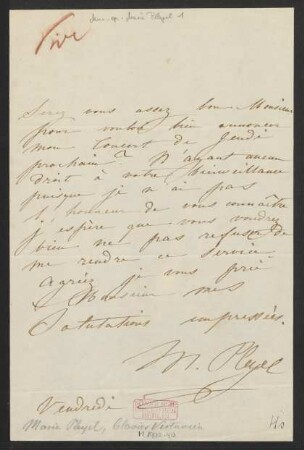 Mus. ep. Marie Pleyel 1
Serez vous assez bon Monsieur
pour vouloir bien annoncer
mon Concert de Jeudi
prochain? N'ayant aucun
droit à votre bienveillance
puisque je n'ai pas
l'honneur de vous connaître
j'espère que vous voudrez
bien ne pas refuser de
me rendre ce service
Agréez je vous prie
Monsieur mes
Salutations empressées.
M. Pleyel
Vendredi
Marie Pleyel, Claviervirtuosin